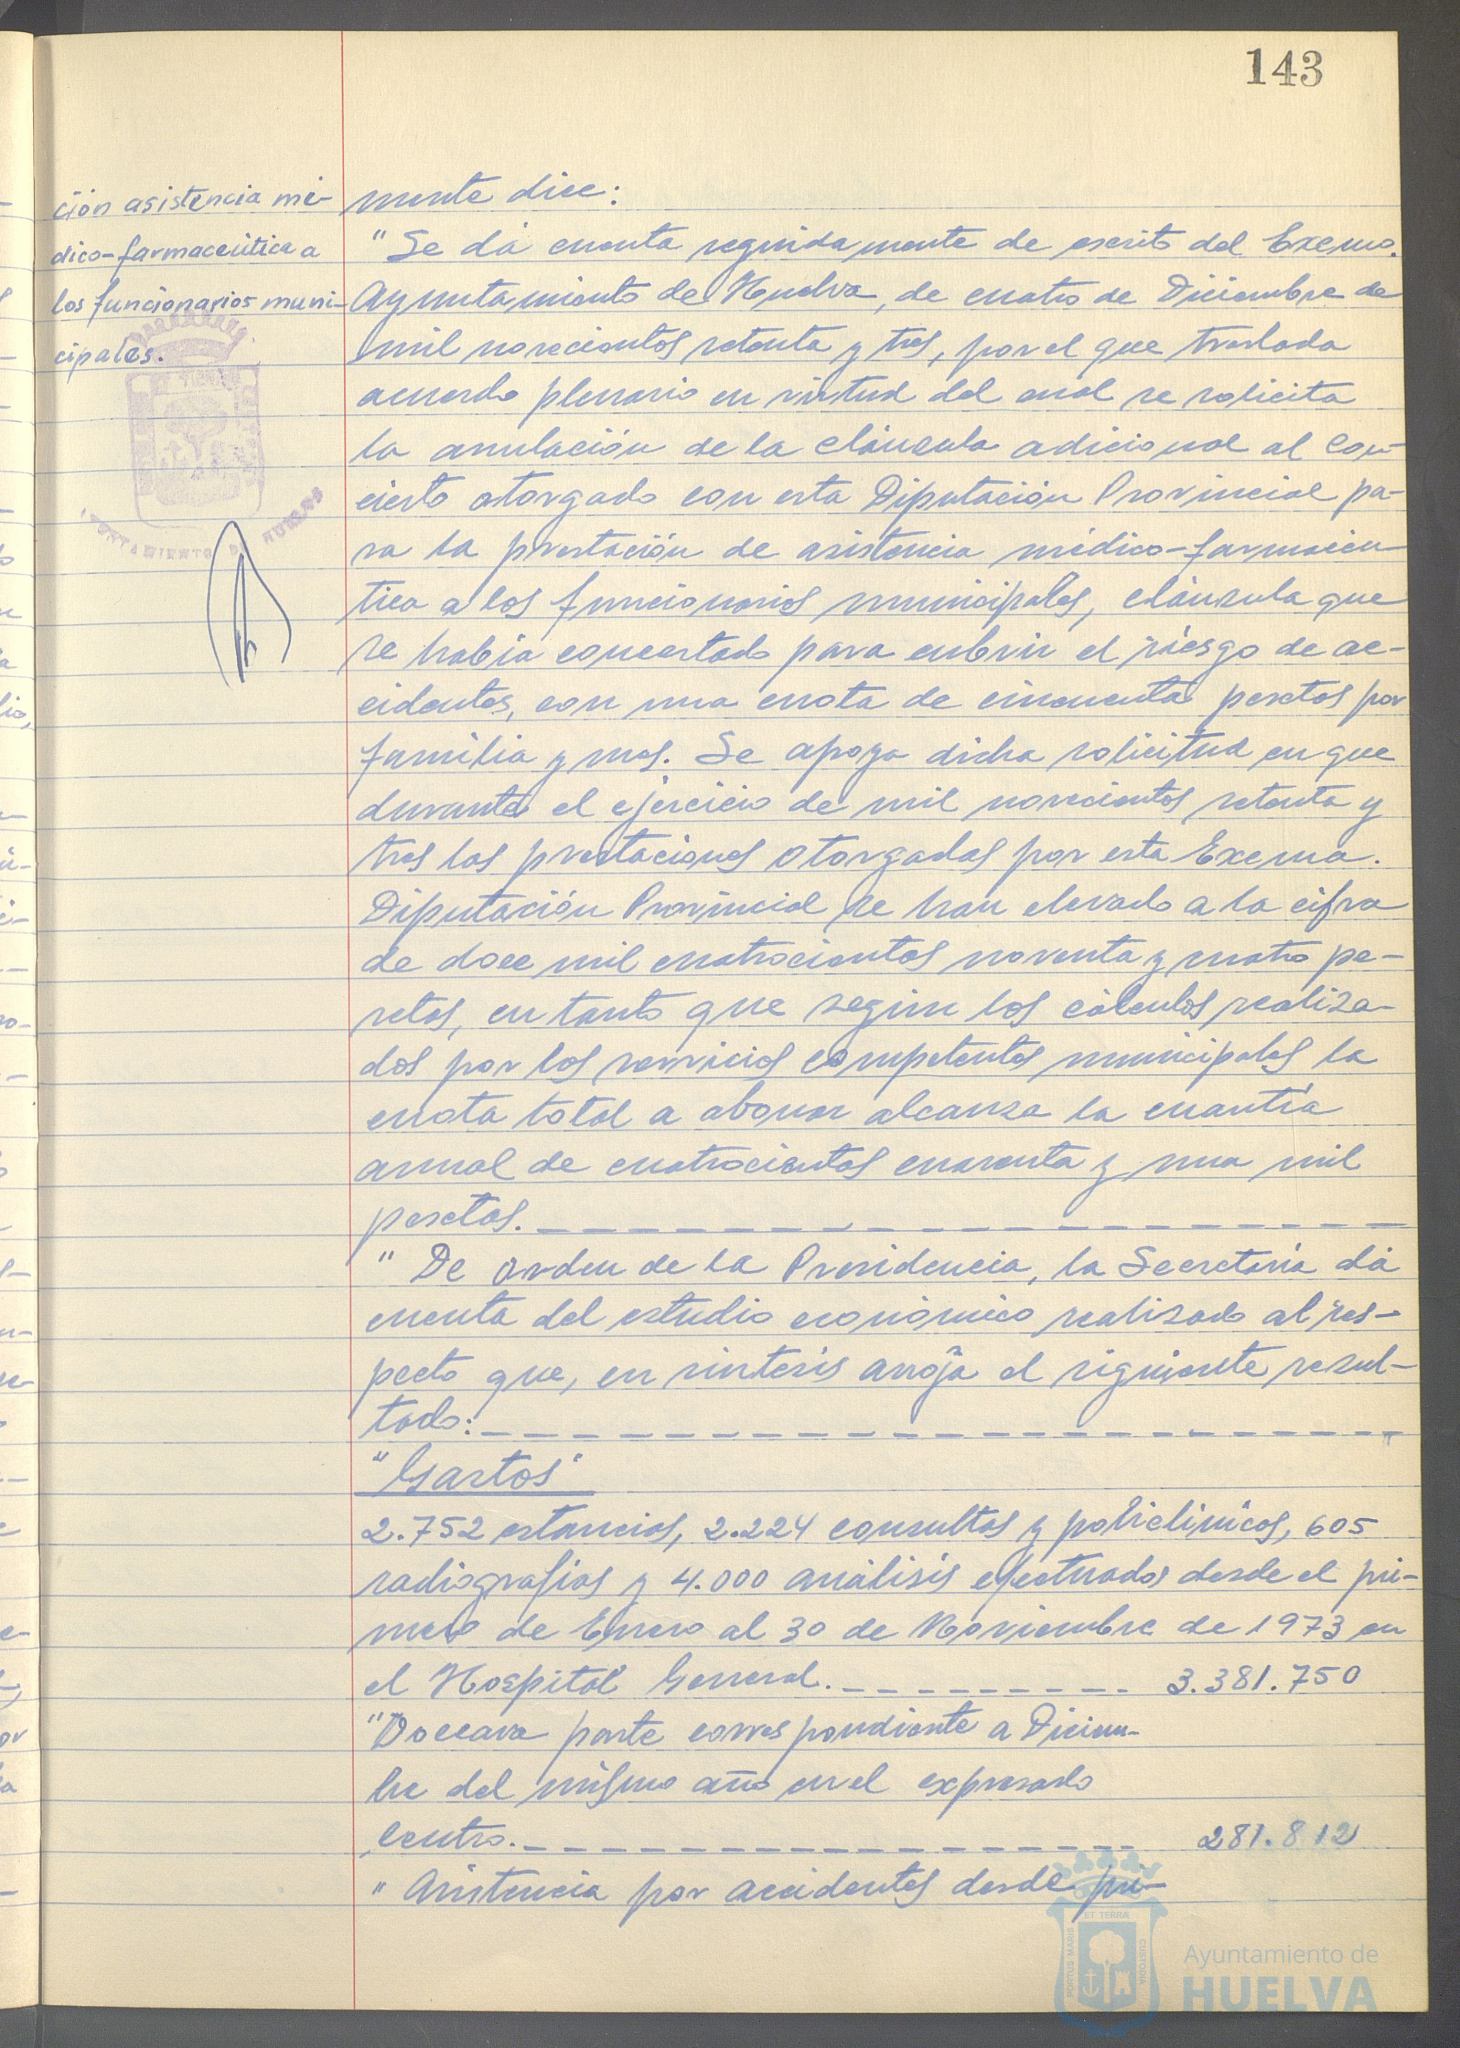 143
ción asistencia mé-
dico-farmaceútica a
los funcionarios muni-
cipales.
AYUNTAMIENTO DE HUELVA
mente dice:
"Se dá cuenta seguidamente de escrito del Excmo.
Ayuntamiento de Huelva, de cuatro de Diciembre de
mil novecientos setenta y tres, por el que traslada
acuerdo plenario en virtud del cual se solicita
la anulación de la cláusula adicional al Con-
cierto otorgado con esta Diputación Provincial pa-
ra la prestación de asistencia médico-farmaceu-
tica a los funcionarios municipales, cláusula que
se había concertado para cubrir el riesgo de ac-
cidentes, con una cuota de cincuenta pesetas por
familia y mes. Se apoya dicha solicitud en que
durante el ejercicio de mil novecientos setenta y
tres las prestaciones otorgadas por esta Excma.
Diputación Provincial se han elevado a la cifra
de doce mil cuatrocientas noventa y cuatro pe-
setas, en tanto que según los cálculos realiza-
dos por los servicios competentes municipales la
cuota total a abonar alcanza la cuantía
anual de cuatrocientas cuarenta y una mil
pesetas.
"De orden de la Presidencia, la Secretaría dá
cuenta del estudio económico realizado al res-
pecto que, en síntesis arroja el siguiente resul-
tado:
"Gastos"
2.752 estancias, 2.224 consultas y policlínicas, 605
radiografías y 4.000 análisis efectuados desde el pri-
mero de Enero al 30 de Noviembre de 1973 en
el Hospital General. 3.381.750
"Doceava parte correspondiente a Diciem-
bre del mismo año en el expresado
Centro. 281.812
"Asistencia por accidentes desde pri-
PORTUS MARIS ET TERRA CUSTODIA
Ayuntamiento de
HUELVA